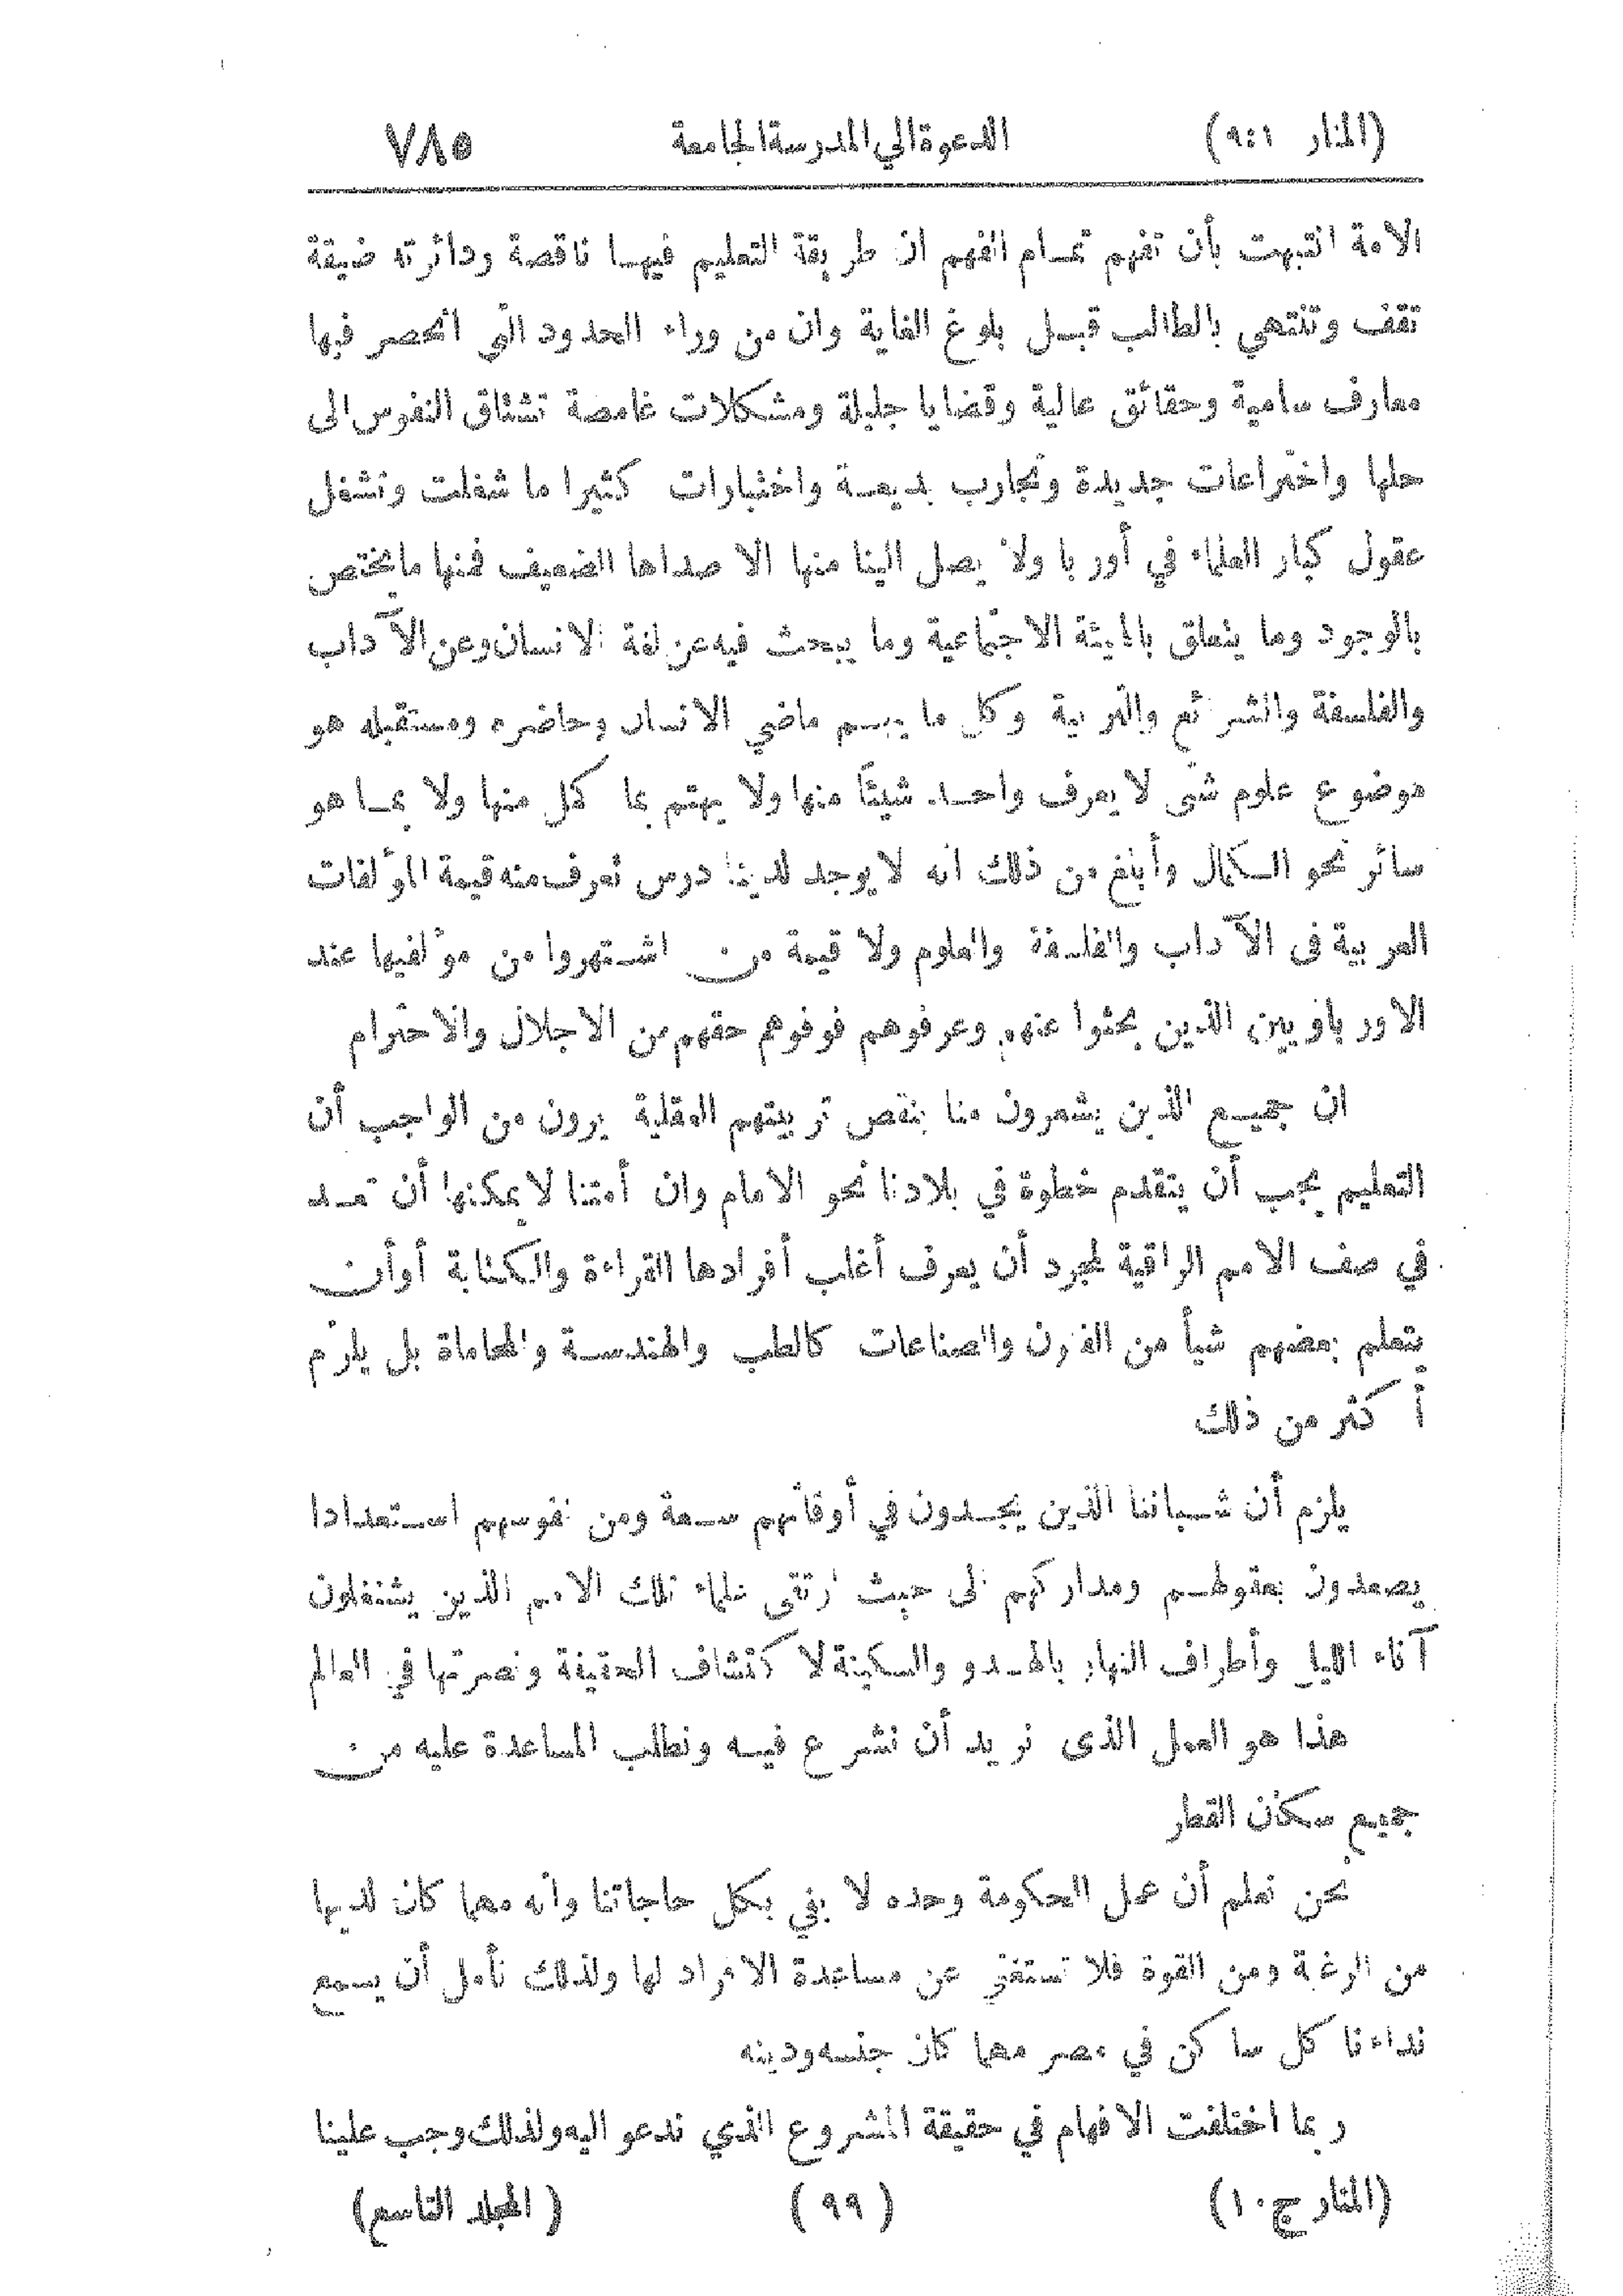 (المنار ٩:١) الدعوة الي المدرسة الجامعة ٧٨٥
الامة انتبهت بأن تفهم تمام الفهم ان طريقة التعليم فيها ناقصة ودائرته ضيقة
تقف وتنتهي بالطالب قبل بلوغ الغاية وان من وراء الحدود التي انحصر فيها
معارف سامية وحقائق عالية وقضايا جليلة ومشكلات غامضة تشتاق النفوس الى
حلها واختراعات جديدة وتجارب بديعة واختبارات كثيرا ما شغلت وتشغل
عقول كبار العلماء في أوربا ولا يصل الينا منها الا صداها الضعيف فمنها ما يختص
بالوجود وما يتعلق بالهيئة الاجتماعية وما يبحث فيه عن لغة الانسان وعن الآداب
والفلسفة والشرائع والتربية وكل ما يهم ماضي الانسان وحاضره ومستقبله هو
موضوع علوم شتى لا يعرف واحد شيئًا منها ولا يهتم بما كمل منها ولا بما هو
سائر نحو الكمال وأبلغ من ذلك انه لا يوجد لدينا درس تعرف منه قيمة المؤلفات
العربية فى الآداب والفلسفة والعلوم ولا قيمة من اشتهروا من مؤلفيها عند
الاورباويين الذين بحثوا عنهم وعرفوهم فوفوهم حقهم من الاجلال والاحترام
ان جميع الذين يشعرون منا بنقص تربيتهم العقلية يرون من الواجب أن
التعليم يجب أن يتقدم خطوة في بلادنا نحو الامام وان أمتنا لا يمكنها أن تعد
في صف الامم الراقية لمجرد أن يعرف أغلب أفرادها القراءة والكتابة أو أن
يتعلم بعضهم شيأ من الفنون والصناعات كالطب والهندسة والمحاماة بل يلزم
أكثر من ذلك
يلزم أن شباننا الذين يجدون في أوقاتهم سعة ومن نفوسهم استعدادا
يصعدون بعقولهم ومداركهم الى حيث ارتقى علماء تلك الامم الذين يشتغلون
آناء الليل وأطراف النهار بالهدو والسكينة لاكتشاف الحقيقة ونصرتها في العالم
هذا هو العمل الذى نريد أن نشرع فيه ونطلب المساعدة عليه من
جميع سكان القطر
نحن نعلم أن عمل الحكومة وحده لا يفي بكل حاجاتنا وأنه مهما كان لديها
من الرغبة ومن القوة فلا تستغني عن مساعدة الافراد لها ولذلك نأمل أن يسمع
نداءنا كل ساكن في مصر مهما كان جنسه ودينه
ربما اختلفت الافهام في حقيقة المشروع الذي ندعو اليه ولذلك وجب علينا
(المنار ج ١٠) (٩٩) (المجلد التاسع)